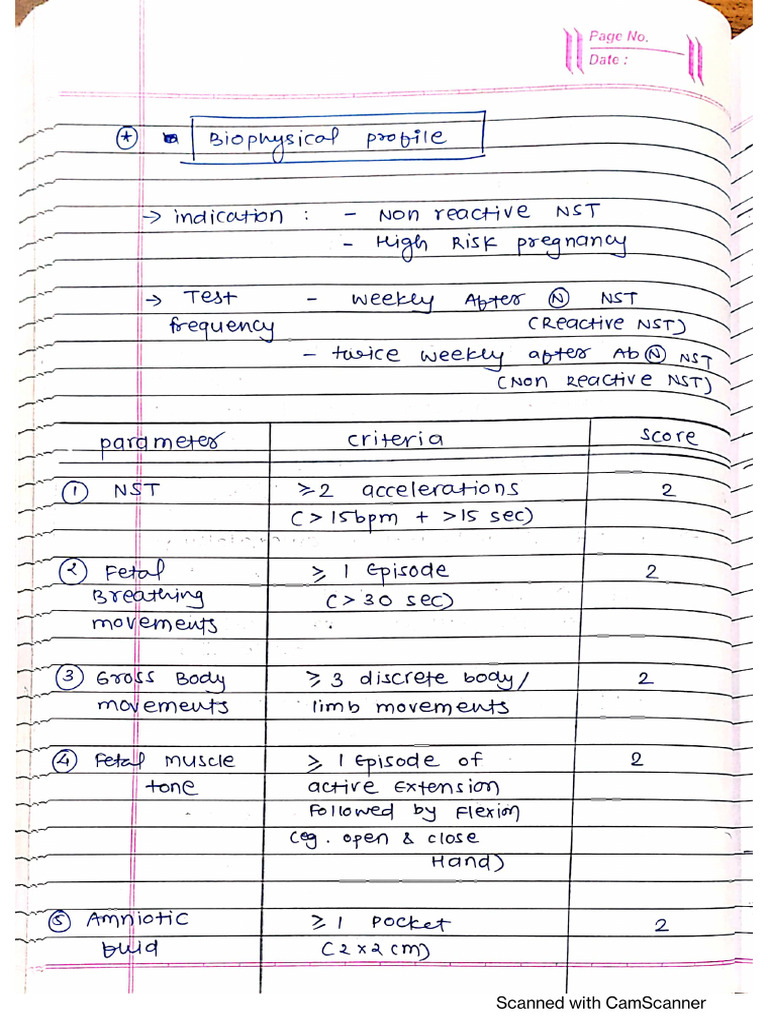 Page No.
Date :
* Biophysical profile
→ indication : - Non reactive NST
- High Risk pregnancy
→ Test frequency - weekly After N NST
(Reactive NST)
- twice weekly after Ab N NST
(Non Reactive NST)
parameter criteria score
1 NST ≥2 accelerations 2
(>15bpm + >15 sec)
2 Fetal ≥ 1 Episode 2
Breathing (>30 sec)
movements
3 Gross Body ≥ 3 discrete body/ 2
movements limb movements
4 Fetal muscle ≥ 1 Episode of 2
tone active Extension
followed by Flexion
(eg. open & close
Hand)
5 Amniotic ≥ 1 Pocket 2
fluid (2x2cm)
Scanned with CamScanner